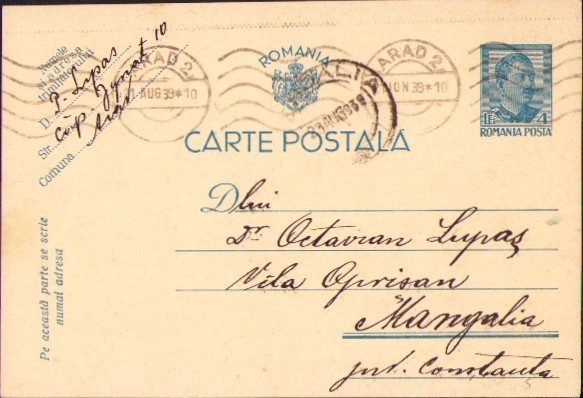 Numele
și adresa
trimițătorului
P. Lupaș
D.
Str.
Comuna
Arad
ARAD 2
21 AUG 39 * 10
ROMANIA
ALIA
23 AUG 939
ARAD 2
IUN 39 * 10
4 LEI
ROMANIA POSTA
CARTE POSTALĂ
Dlui
Dr. Octavian Lupaș
Vila Oprisan
Mangalia
jud. Constanța
Pe această parte se scrie
numai adresa